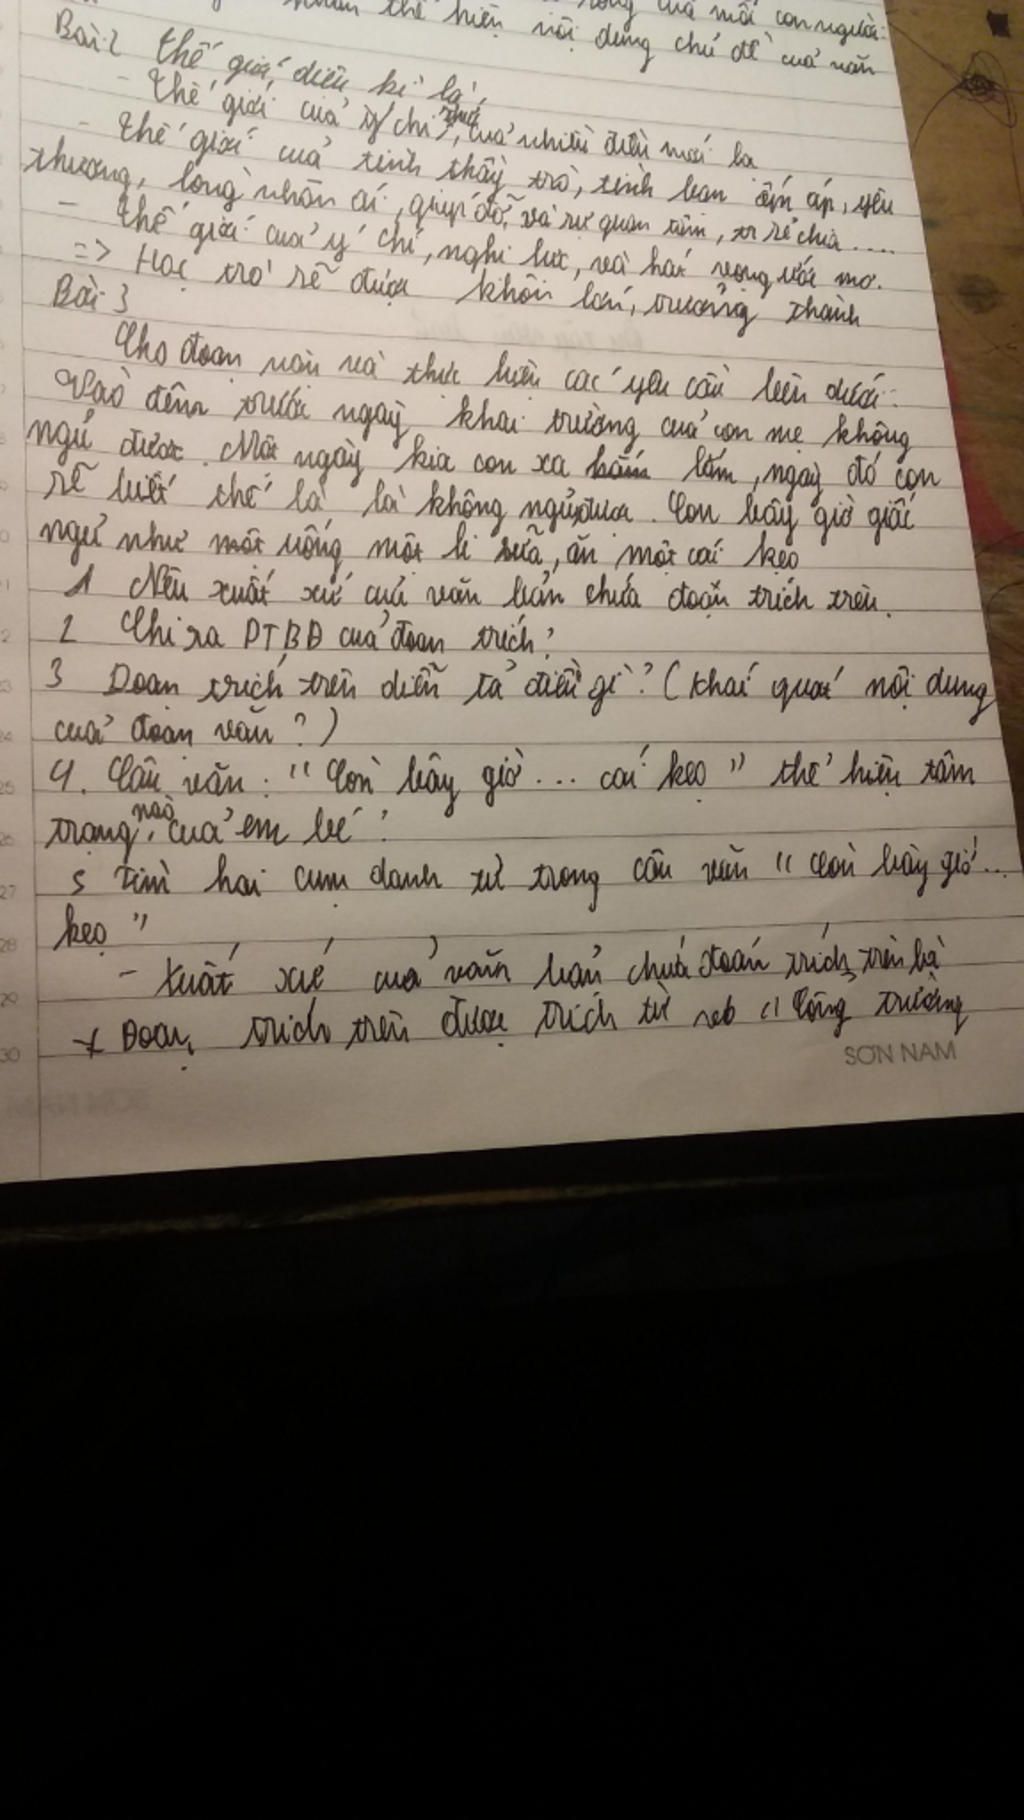 thể hiện nội dung chủ đề của văn
Bài 2 thế giới diệu kì là,
- thế giới của ý chí, của nhiều điều mới la
- thế giới của tình thầy trò, tình bạn ấm áp, yêu
thương, long nhân ái, giúp đỡ, và sự quan tâm,
- thế giới của ý chí, nghi lưc, và hát vọng ước mơ.
=> Hoc trò sẽ được khôn lớn, trưởng thành
Bài 3
Cho đoạn văn và thưc hiên các yêu cầu bên dưới:
Vào đêm trước ngày khai trường của con mẹ không
ngủ được. Một ngày kia con xa lắm, ngày đó con
sẽ biết thế là là không ngủ được. Con bây giờ giấc
ngủ như một uống một li sữa, ăn một cái kẹo
1 Nêu xuất xứ của văn bản chứa đoạn trích trên.
2 Chỉ ra PTBĐ của đoan trích?
3 Đoạn trích trên diễn tả điều gì? (khái quát nội dung
của đoạn văn?)
4. Câu văn: "Con bây giờ... cái kẹo" thể hiện tâm
trạng nào của em bé?
5 tìm hai cụm danh từ trong câu văn "Con bây giờ...
kẹo"
- Xuất xứ của văn bản chứa đoạn trích trên là
+ Đoạn trích trên được trích từ vb "Cổng trường
SƠN NAM